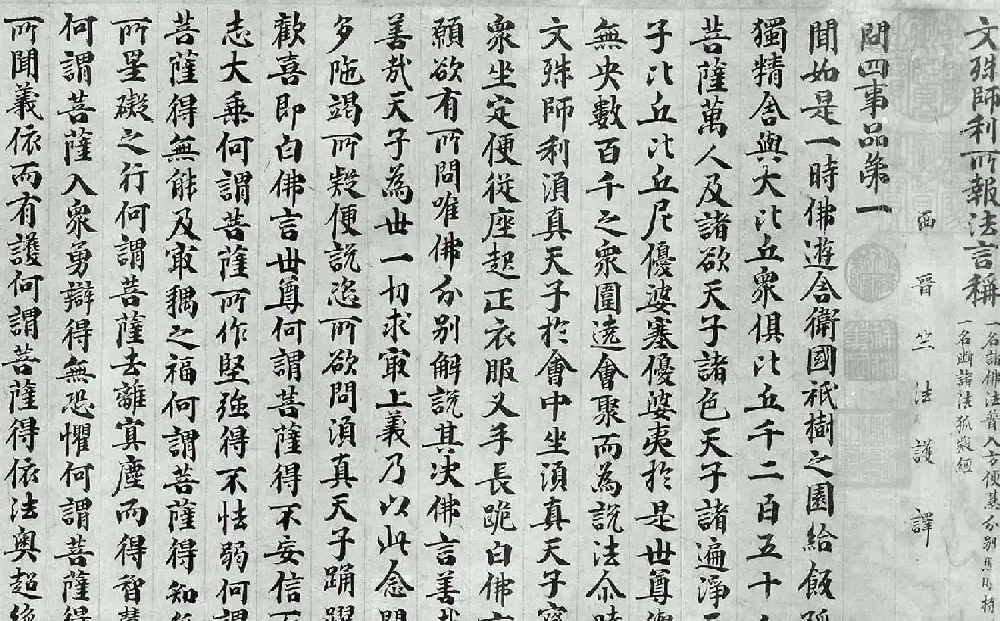 文殊師利所報法言稱
一名諸佛法普入方便慧分別照明持
一名断諸法狐疑經
西晉竺法護譯
問四事品第一
聞如是一時佛遊舍衛國祇樹之園給飯孤
獨精舍與大比丘衆俱比丘千二百五十
菩薩萬人及諸欲天子諸色天子諸遍淨天
子比丘比丘尼優婆塞優婆夷於是世尊與
無央數百千之衆圍遶會聚而為說法尒時
文殊師利湏真天子於會中坐湏真天子
衆坐定便從座起正衣服叉手長跪白佛言
願欲有所問唯佛分別解說其决佛言善哉
善哉天子為世一切求㝡上義乃以此念問
多陁竭所疑便說恣所欲問湏真天子踊躍
歡喜即白佛言世尊何謂菩薩得不妄信
志大乗何謂菩薩所作堅強得不怯弱何謂
菩薩得無能及㝡耦之福何謂菩薩得知
所罣礙之行何謂菩薩去離寘塵而得智慧
何謂菩薩入衆勇辯得無恐懼何謂菩薩得
所聞義依而有護何謂菩薩得依法奥超絶